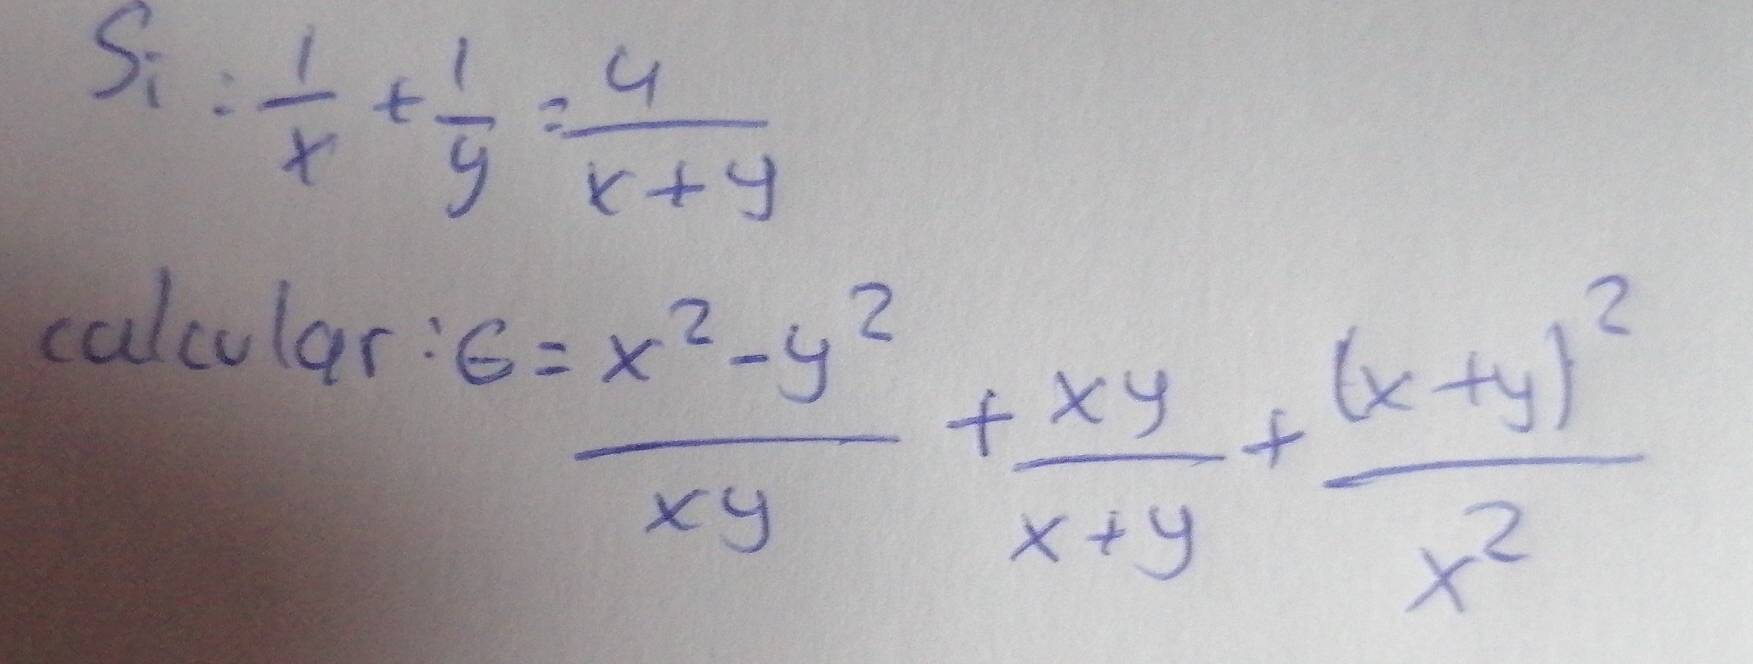 Si: 1/x + 1/y = 4/(x+y)
calcular: E = (x² - y²)/(xy) + (xy)/(x+y) + (x+y)²/x²